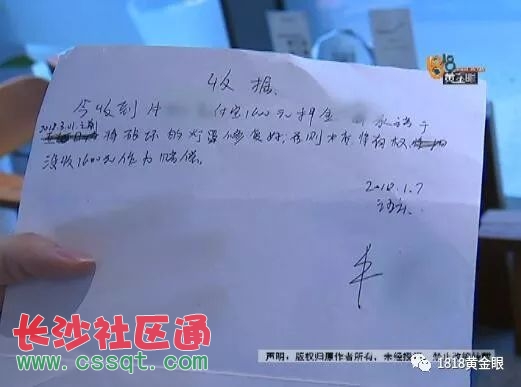 1818
黄金眼
收据
今收到 付宝1600元押金 承诺于
2018.3.01之前
将破坏的灯源修复好,否则 将有权
没收1600元作为赔偿。
2018.1.7
长沙社区通
www.cssqt.com
声明:版权归原作者所有,未经授
1818黄金眼